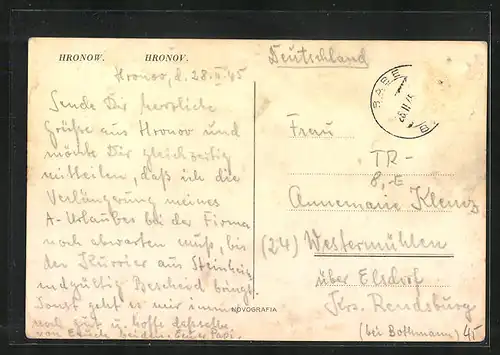 HRONOW. HRONOV.
Hronov, d. 28.II.45
Sende Dir herzliche
Grüße aus Hronov und
möchte Dir gleichzeitig
mitteilen, daß ich die
Verlängerung meines
A-Urlaubes bei der Firma
noch abwarten muß, bis
der Kurrier aus Steinheim
endgültig Bescheid bringt.
Sonst geht es mir immer
noch gut u. hoffe dasselbe
von Euch beiden. Euer Papi.
NOVOGRAFIA
Deutschland
Frau
TR-
Annemarie Klenz
(24) Westermühlen
über Elsdorf
Krs. Rendsburg
(bei Bothmann) 45